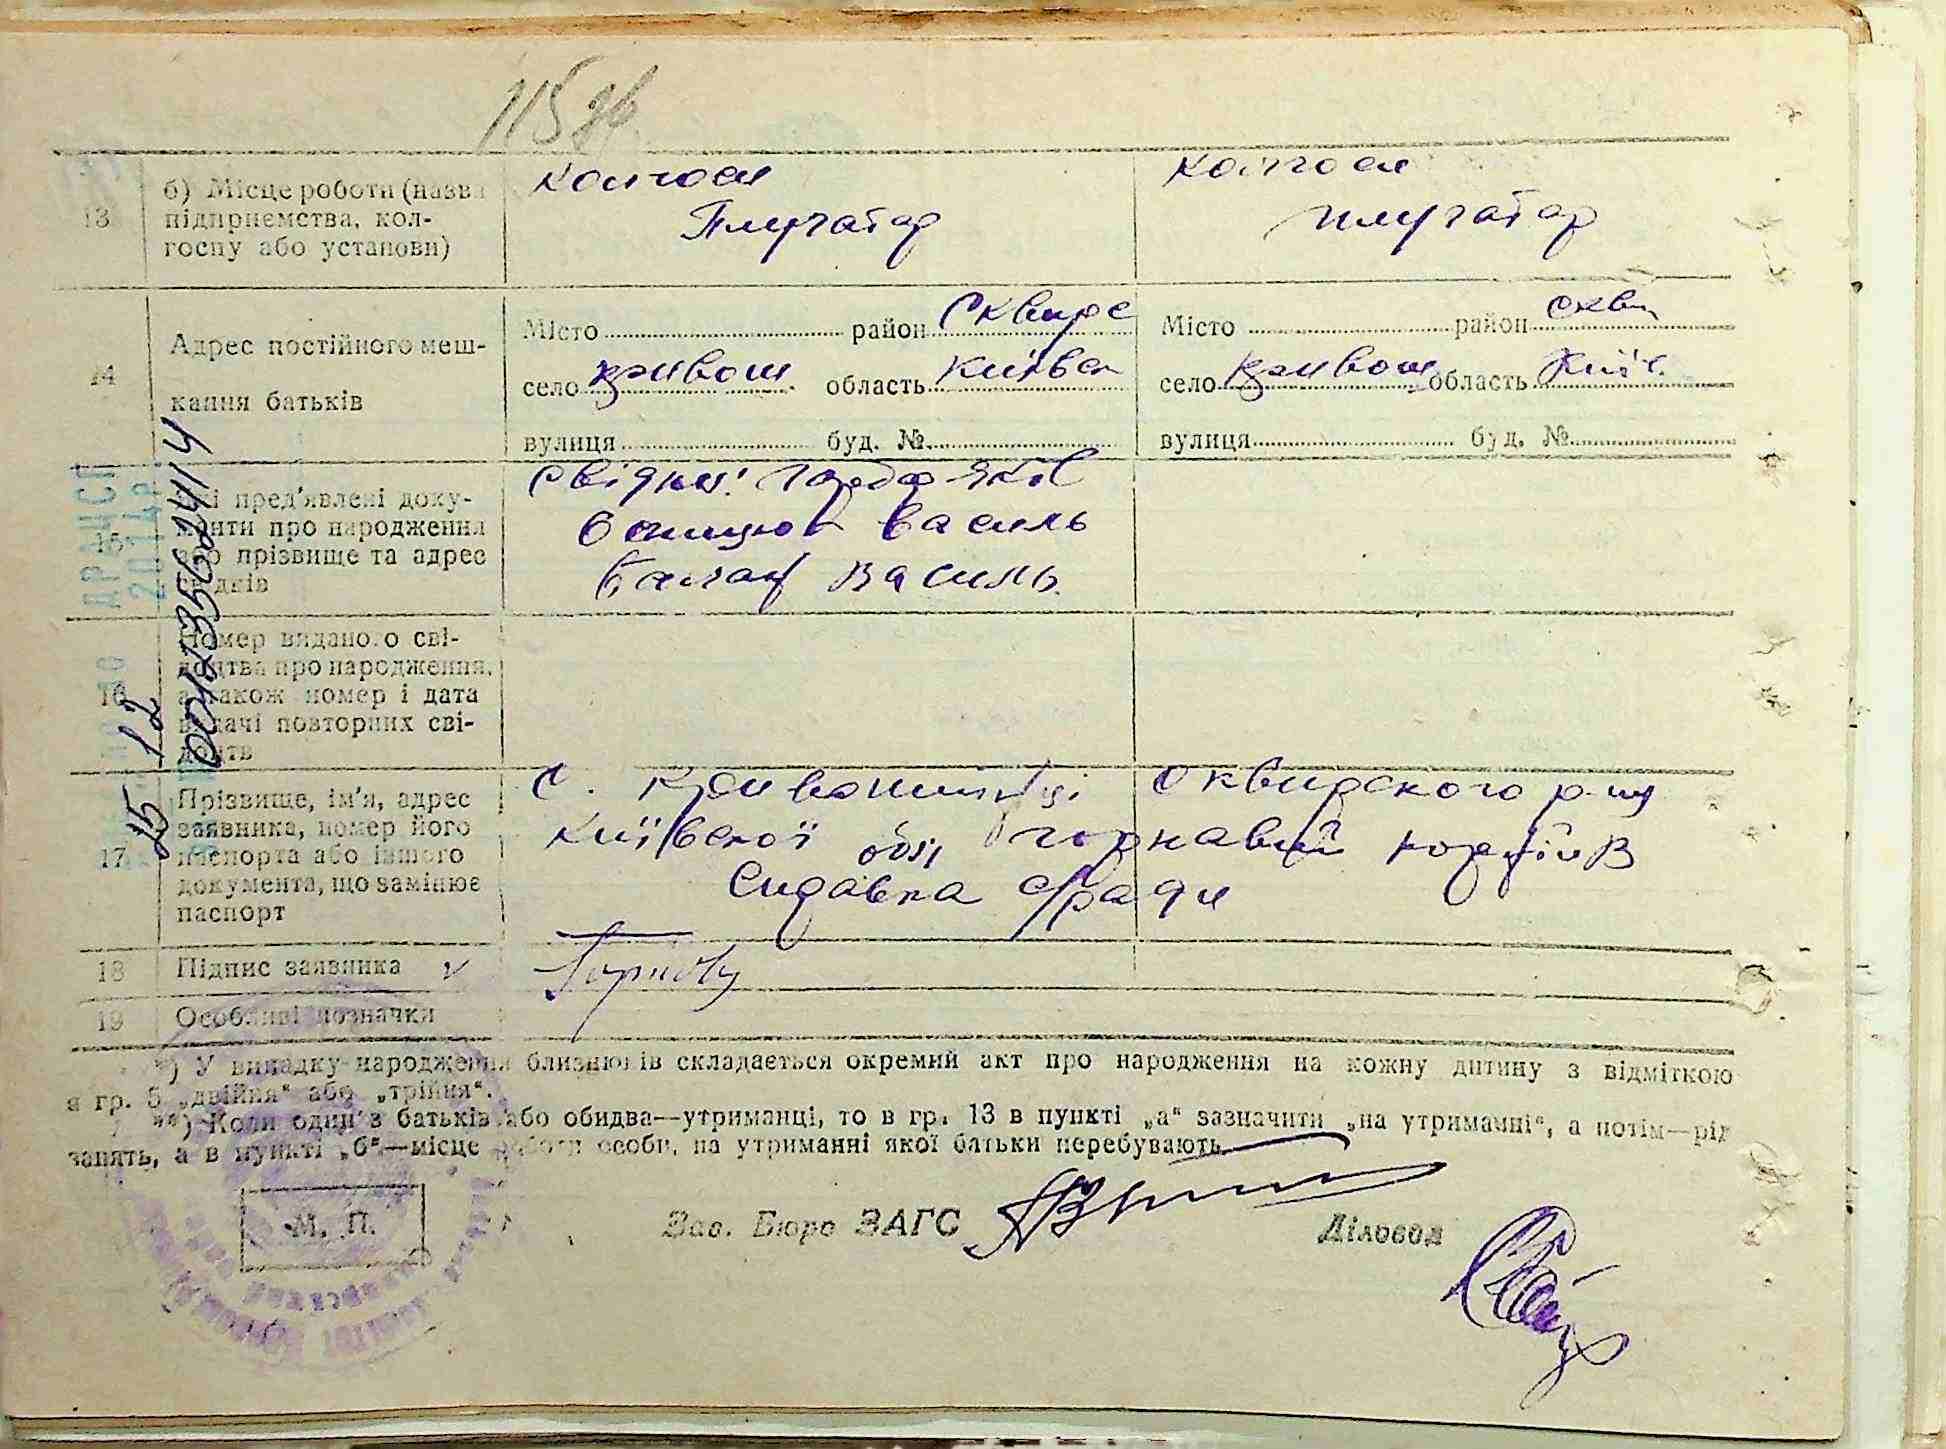 115 зв.
13
б) Місце роботи (назва
підприємства, кол-
госпу або установи)
Колгосп
Плугатар
Колгосп
плугатар
14
Адрес постійного меш-
кання батьків
Місто район Сквирс
село Кривош. область Київськ
вулиця буд. №
Місто район Скви
село Кривош область Київ.
вулиця буд. №
15
Які пред'явлені доку-
менти про народження
або прізвище та адрес
свідків
Свідки: Горба Яків
Василь
Балан Василь.
16
Номер виданого сві-
доцтва про народження,
а також номер і дата
видачі повторних сві-
доцтв
17
Прізвище, ім'я, адрес
заявника, номер його
паспорта або іншого
документа, що замінює
паспорт
С. Кривошиїнці Сквирского р-ну
Київської обл
Справка с/ради
18
Підпис заявника
19
Особливі позначки
*) У випадку народження близнюків складається окремий акт про народження на кожну дитину з відміткою
в гр. 5 „двійня“ або „трійня“.
**) Коли один з батьків або обидва—утриманці, то в гр. 13 в пункті „а“ зазначити „на утриманні“, а потім—рід
занять, а в пункті „б“—місце роботи особи, на утриманні якої батьки перебувають.
М. П.
Зав. Бюро ЗАГС
Діловод
ДРАЦСГ
25 12
0013562414